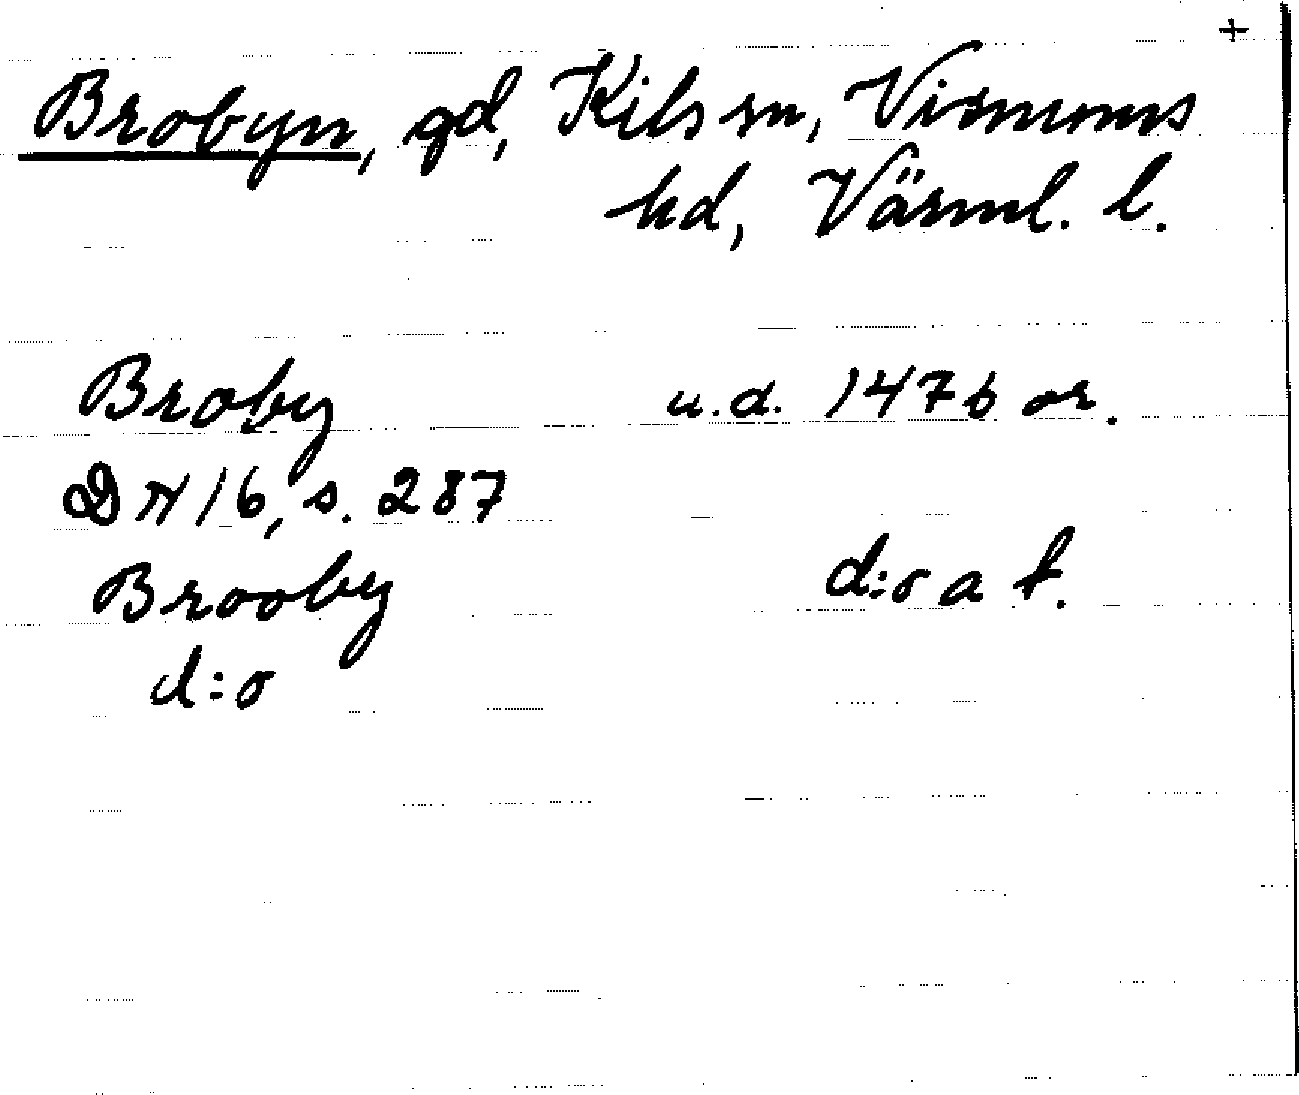 +
Brobyn, gd, Kils sn, Visnums
hd, Värml. l.
Broby u.d. 1476 or.
DN 16, s. 287
Brooby d:o a t.
d:o